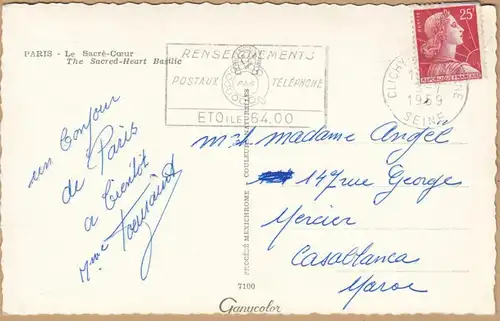 PARIS - Le Sacré-Cœur
The Sacred-Heart Basilic
RENSEIGNEMENTS
POSTAUX PAR TÉLÉPHONE
ETOILE 64.00
25F
REPUBLIQUE FRANÇAISE
CLICHY
1959
SEINE
un Bonjour
de Paris
a bientôt
Mme Toussaint
PROCÉDÉ MEXICHROME COULEURS NATURELLES
7100
Ganycolor
m et madame Angel
147 rue George
Mercier
Casablanca
Maroc